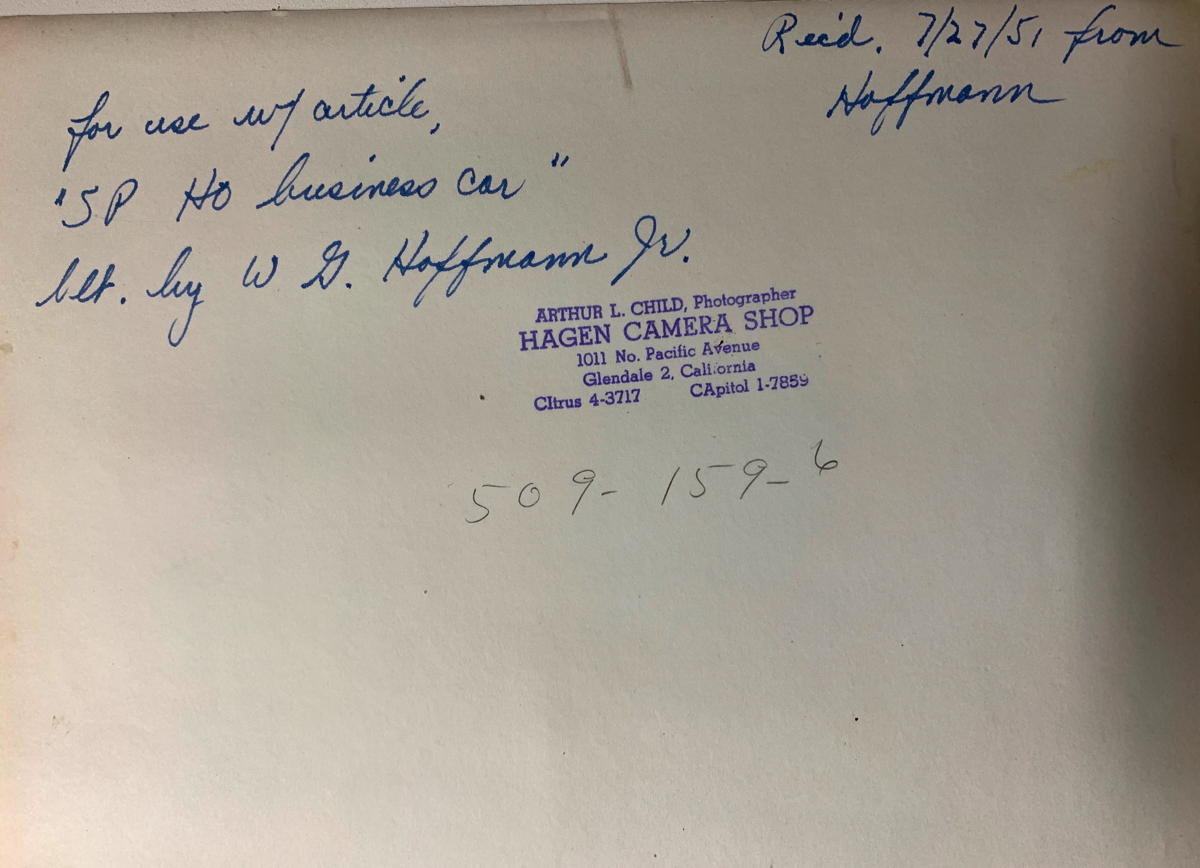 Rec'd. 7/27/51 from
Hoffmann
for use w/ article,
"SP HO business car"
blt. by W G. Hoffmann Jr.
ARTHUR L. CHILD, Photographer
HAGEN CAMERA SHOP
1011 No. Pacific Avenue
Glendale 2, California
CItrus 4-3717 CApitol 1-7859
509- 159-6